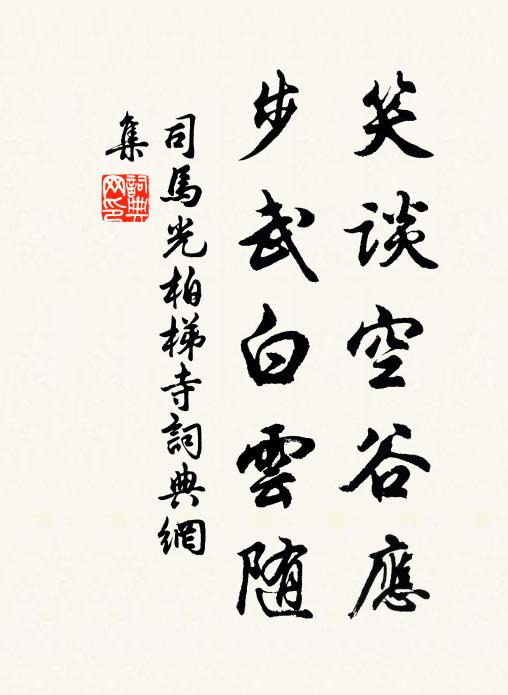 笑谈空谷應
步武白雲随
司馬光柏梯寺詞典網
集
詞典網印